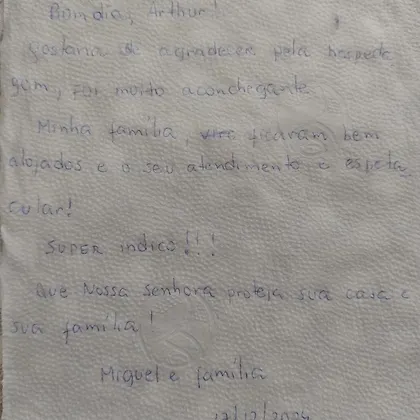 Bom dia, Arthur!
Gostaria de agradecer pela hospeda
gem, foi muito aconchegante
Minha família, ficaram bem
alojados e o seu atendimento é espeta
cular!
SUPER indico!!!
Que Nossa senhora proteja sua casa e
sua família!
Miguel e família